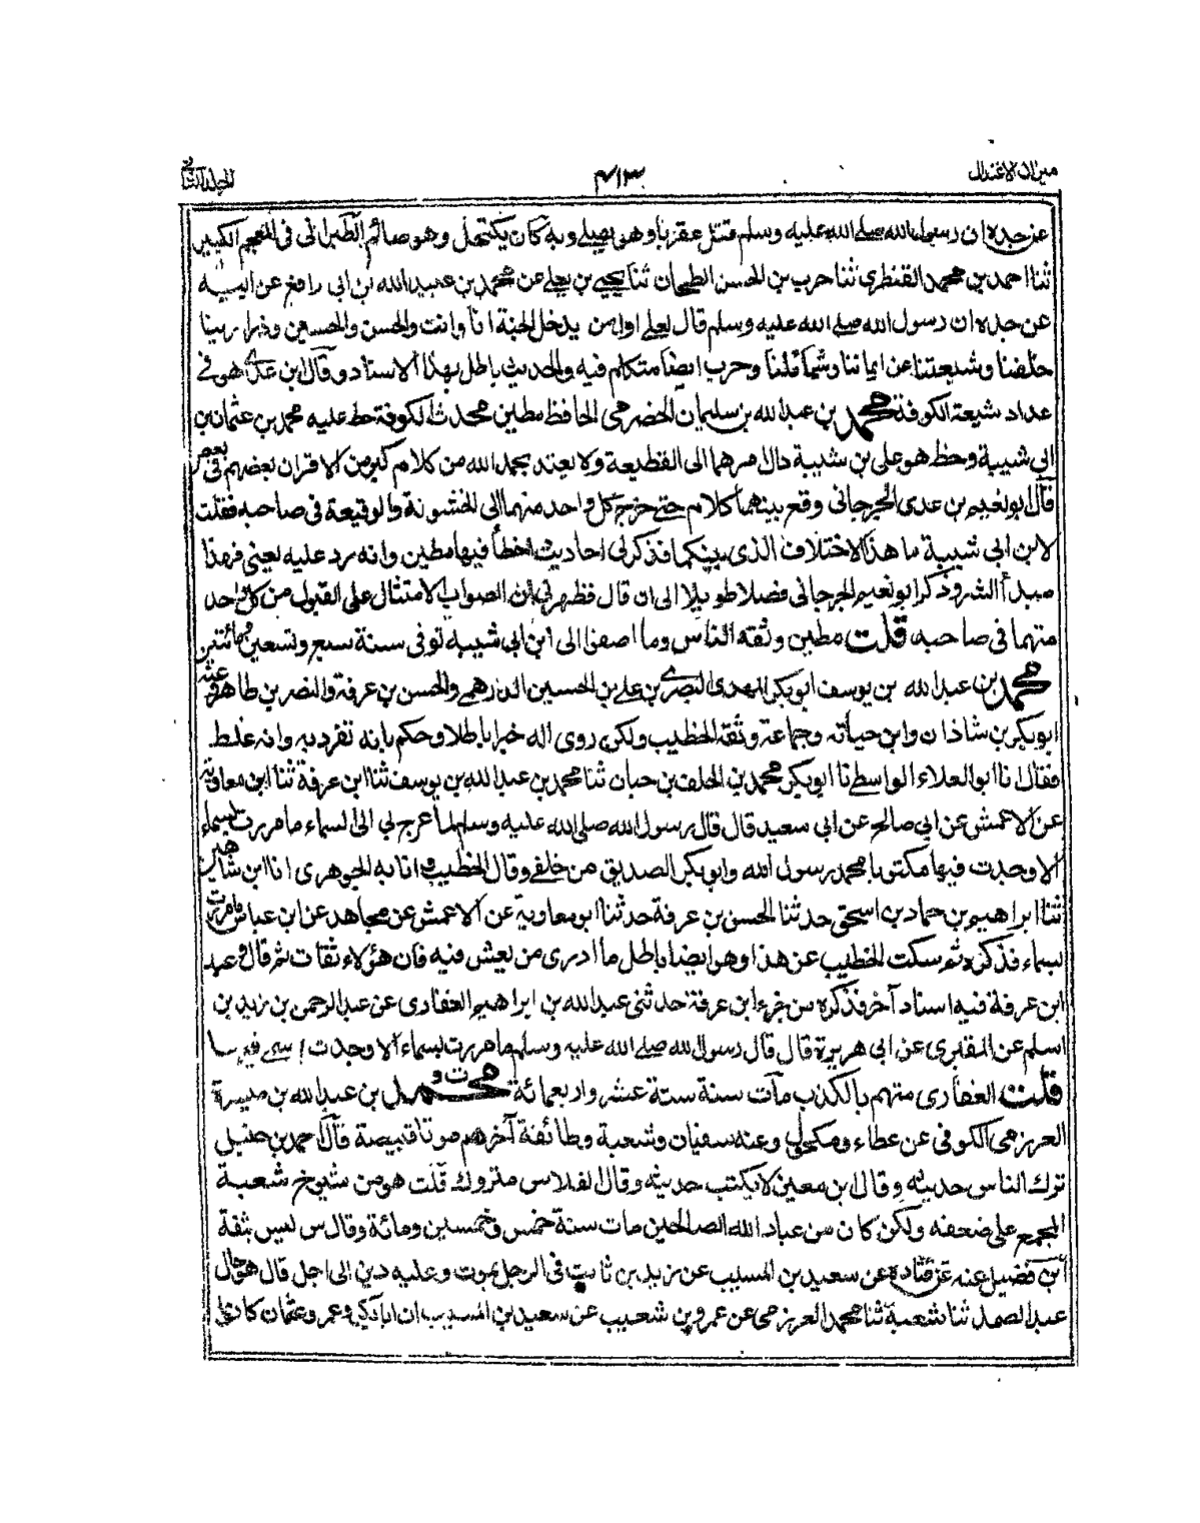 ميزان الاعتدال
٤١٣
المجلد الثانى
عن جده ان رسول الله صلى الله عليه وسلم قتل عقربا وهو يصلى وبه كان يكتحل وهو صائم الطبرانى فى المعجم الكبير
ثنا احمد بن محمد القنطرى ثنا حرب بن الحسن الطحان ثنا يحيى بن يعلى عن محمد بن عبيد الله بن ابى رافع عن ابيه
عن جده ان رسول الله صلى الله عليه وسلم قال لعلى اول من يدخل الجنة انا وانت والحسن والحسين وذرارينا
خلفنا وشيعتنا عن ايماننا وشمائلنا وحرب ايضا متكلم فيه والحديث باطل بهذا الاسناد وقال ابن عدى هو فى
عداد شيعة الكوفة محمد بن عبد الله بن سليمان الحضرمى الحافظ مطين محدث الكوفة حط عليه محمد بن عثمان بن
ابى شيبة وحط هو على بن ابى شيبة وال امرهما الى القطيعة ولا يعتد بحمد الله من كلام كثير من الاقران بعضهم فى بعض
قال ابو نعيم بن عدى الجرجانى وقع بينهما كلام حتى خرج كل واحد منهما الى الخشونة والوقيعة فى صاحبه فقلت
لابن ابى شيبة ما هذا الاختلاف الذى بينكما فذكر لى احاديث اخطأ فيها مطين وانه رد عليه يعنى فهذا
مبدأ الشر وذكر ابو نعيم الجرجانى فصلا طويلا الى ان قال فظهر لى ان الصواب الامتثال على القبول من كل واحد
منهما فى صاحبه قلت مطين وثقه الناس وما اصغوا الى ابن ابى شيبة توفى سنة سبع وتسعين ومائتين
محمد بن عبد الله بن يوسف ابو بكر المهدى البصرى بن على بن الحسين الدرهمى والحسن بن عرفة والنضر بن طاهر وعنه
ابو بكر بن شاذان وابن حياته وجماعة وثقه الخطيب ولكن روى اله خبرا باطلا وحكم بانه تفرد به وانه غلط
فقال انا ابو العلاء الواسطى نا ابو بكر محمد بن الخلف بن حبان ثنا محمد بن عبد الله بن يوسف ثنا ابن عرفة ثنا ابن معاوية
عن الاعمش عن ابى صالح عن ابى سعيد قال قال رسول الله صلى الله عليه وسلم لما عرج بى الى السماء ما مررت بسماء
الا وجدت فيها مكتوبا محمد رسول الله وابو بكر الصديق من خلفى وقال الخطيب و انا به الجوهرى انا ابن شاهين
ثنا ابراهيم بن حماد بن اسحق حدثنا الحسن بن عرفة حدثنا ابو معاوية عن الاعمش عن مجاهد عن ابن عباس ما مررت
بسماء فذكره ثم سكت الخطيب عن هذا وهو ايضا باطل ما ادرى من يغش فيه فان هؤلاء ثقات ثم قال و عبد
ابن عرفة فيه اسناد آخر فذكره من جزء ابن عرفة حدثنى عبد الله بن ابراهيم الغفارى عن عبد الرحمن بن زيد بن
اسلم عن المقبرى عن ابى هريرة قال قال رسول الله صلى الله عليه وسلم ما مررت بسماء الا وجدت اسمى فيها
قلت الغفارى متهم بالكذب مات سنة ستة عشر واربعمائة محمد ت و بن عبد الله بن ميسرة
العرزمى الكوفى عن عطاء ومكحول وعنه سفيان وشعبة وطائفة آخرهم موتا قبيصة قال احمد بن حنبل
ترك الناس حديثه وقال ابن معين لا يكتب حديثه وقال الفلاس متروك قلت هو من شيوخ شعبة
المجمع على ضعفه ولكن كان من عباد الله الصالحين مات سنة خمس وخمسين ومائة وقال س ليس بثقة
ابن فضيل عنه عن قتادة عن سعيد بن المسيب عن زيد بن ثابت فى الرجل يموت وعليه دين الى اجل قال هو حال
عبد الصمد ثنا شعبة ثنا محمد العرزمى عن عمرو بن شعيب عن سعيد بن المسيب ان ابا بكر وعمر وعثمان كادى